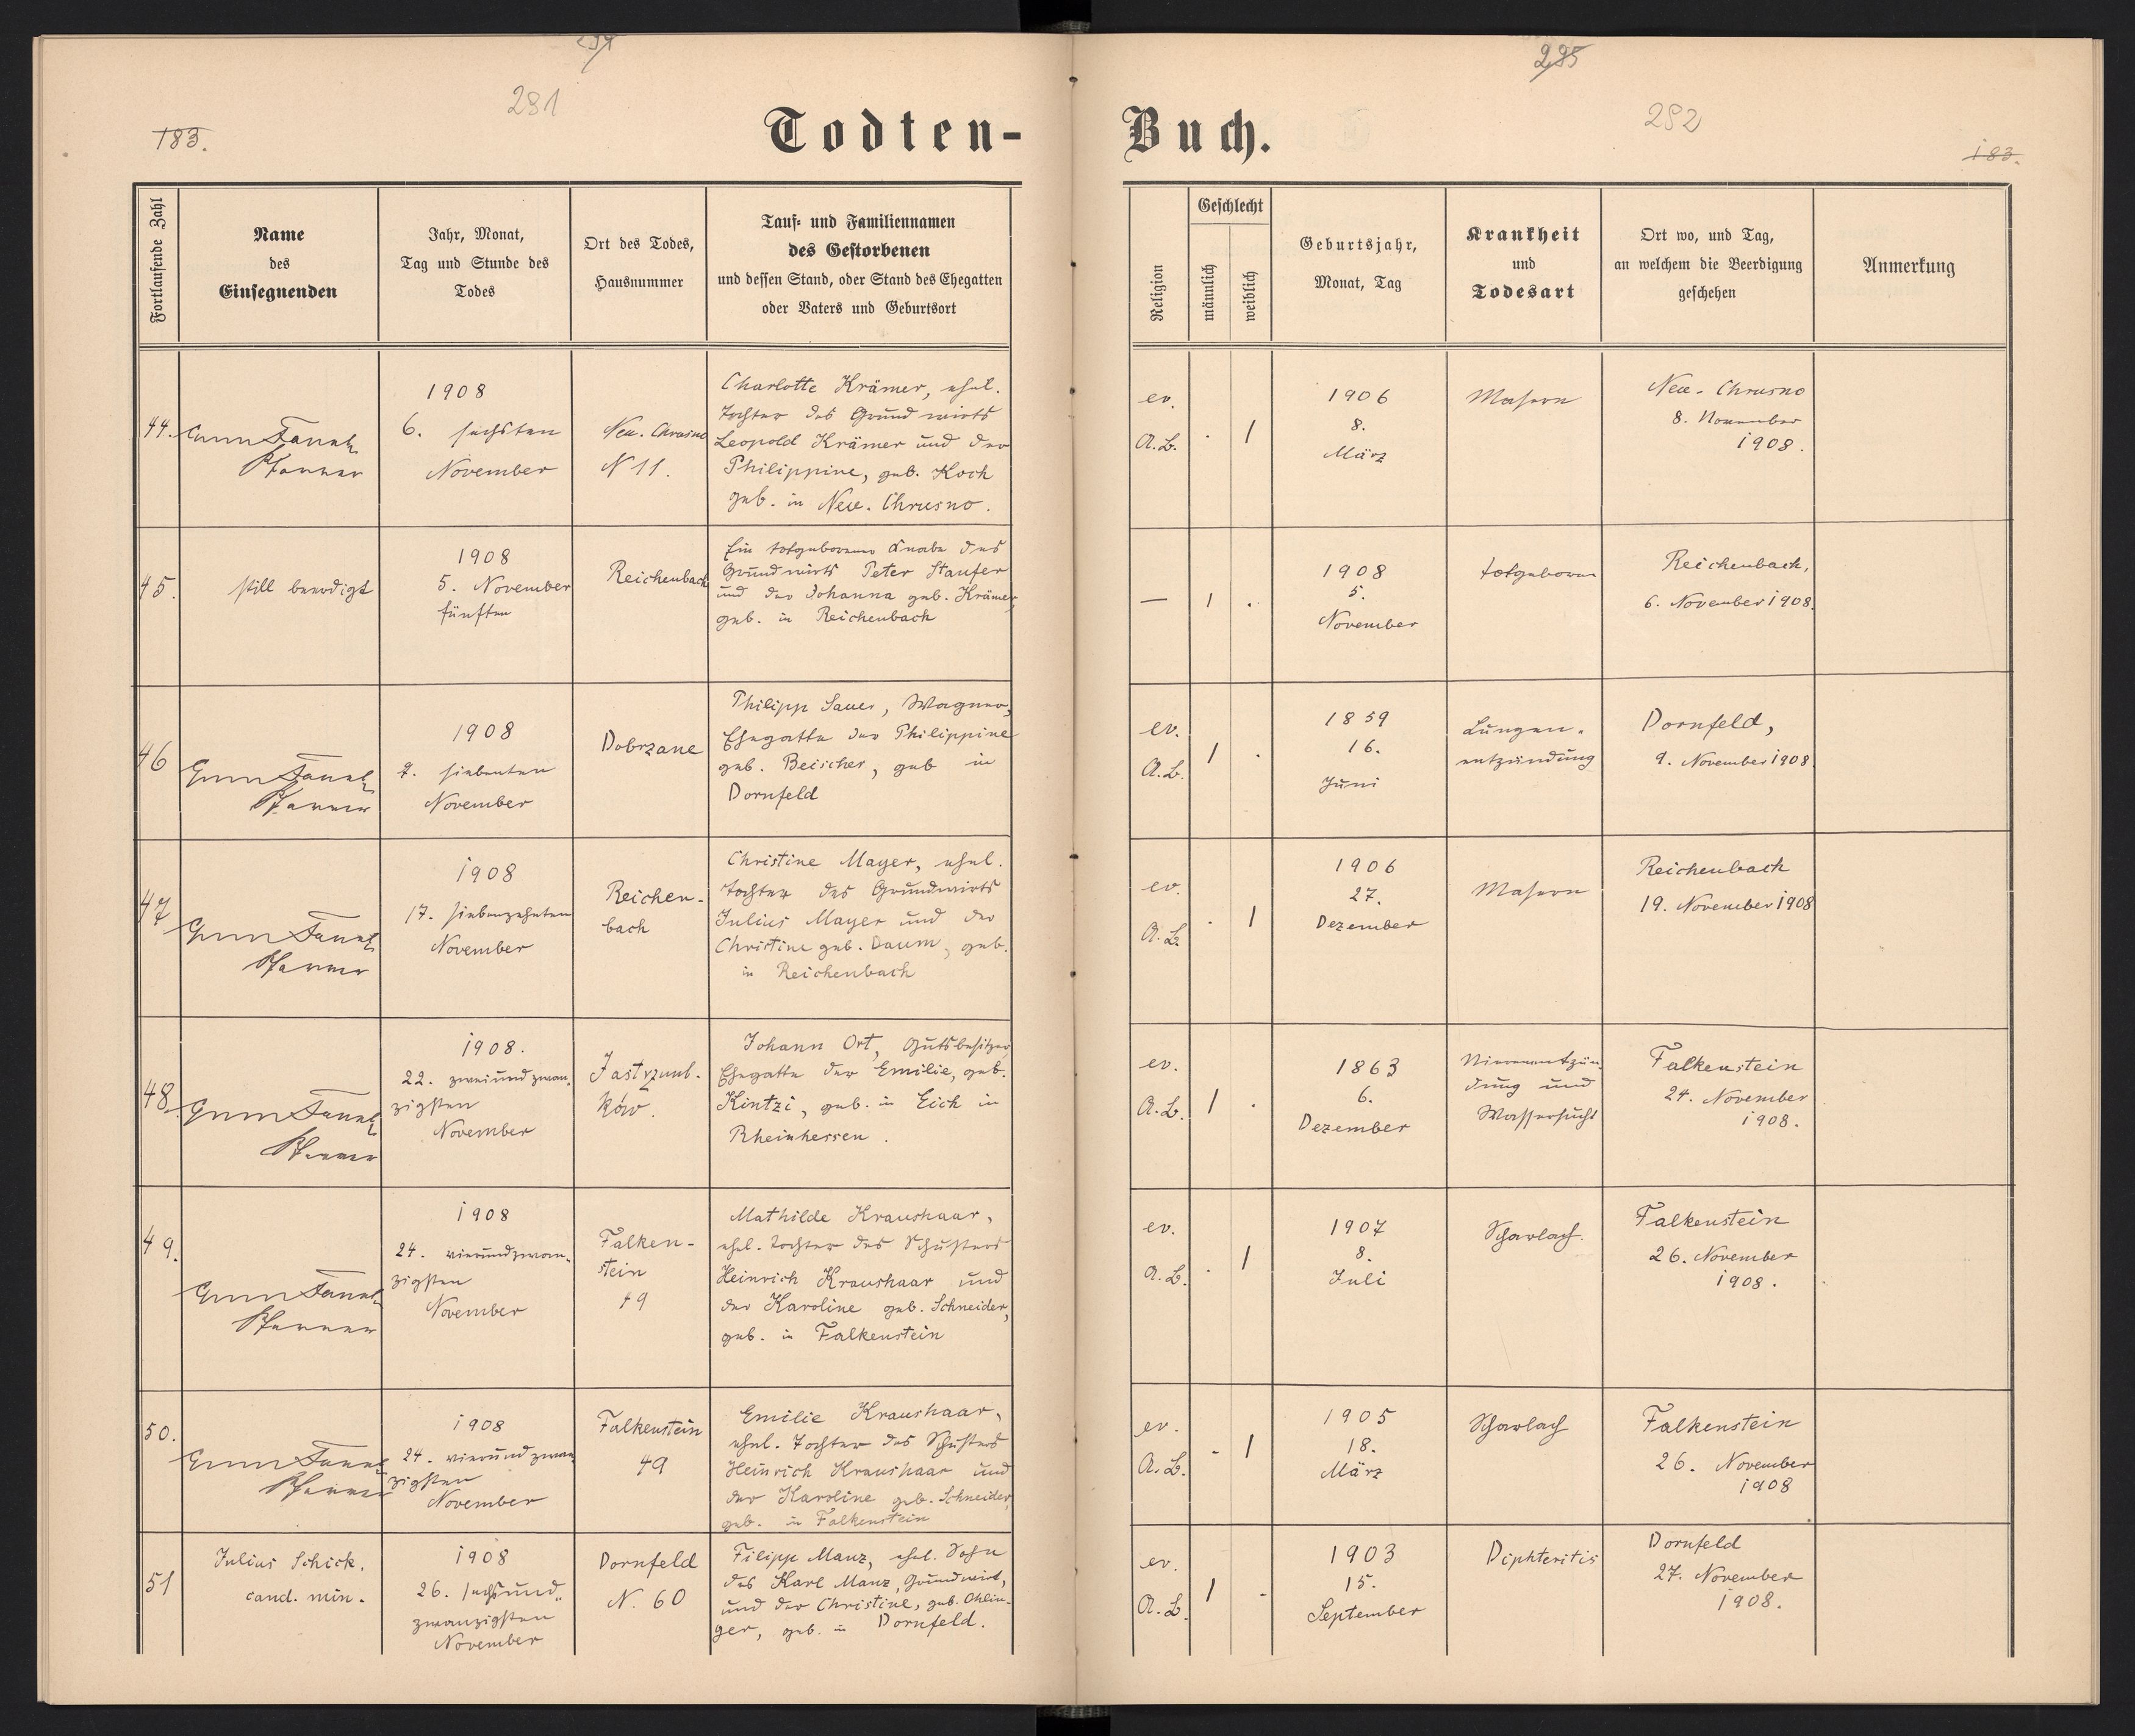 294
281
183.
Todten-
Fortlaufende Zahl
Name
des
Einsegnenden
Jahr, Monat,
Tag und Stunde des
Todes
Ort des Todes,
Hausnummer
Tauf- und Familiennamen
des Gestorbenen
und dessen Stand, oder Stand des Ehegatten
oder Vaters und Geburtsort
44.
Pfarrer
1908
6. sechsten
November
Neu-Chrusno
N 11.
Charlotte Krämer, ehel.
Tochter des Grundwirts
Leopold Krämer und der
Philippine, geb. Koch
geb. in Neu-Chrusno.
45.
still beerdigt
1908
5. November
fünften
Reichenbach
Ein totgeborener Knabe des
Grundwirts Peter Staufer
und der Johanna geb. Krämer,
geb. in Reichenbach
46
Pfarrer
1908
7. siebenten
November
Dobrzane
Philipp Sauer, Wagner,
Ehegatte der Philippine
geb. Beischer, geb in
Dornfeld
47
Pfarrer
1908
17. siebenzehnten
November
Reichen-
bach
Christine Mayer, ehel.
Tochter des Grundwirts
Julius Mayer und der
Christine geb. Daum, geb.
in Reichenbach
48
Pfarrer
1908.
22. zweiundzwan-
zigsten
November
Jastrzemb-
ków.
Johann Ort, Gutsbesitzer,
Ehegatte der Emilie, geb.
Kintzi, geb. in Eich in
Rheinhessen.
49.
Pfarrer
1908
24. vierundzwan-
zigsten
November
Falken-
stein
49
Mathilde Kraushaar,
ehel. Tochter des Schusters
Heinrich Kraushaar und
der Karoline geb. Schneider,
geb. in Falkenstein
50.
Pfarrer
1908
24. vierundzwan-
zigsten
November
Falkenstein
49
Emilie Kraushaar,
ehel. Tochter des Schusters
Heinrich Kraushaar und
der Karoline geb. Schneider,
geb. in Falkenstein
51
Julius Schick.
cand. min.
1908
26. sechsund-
zwanzigsten
November
Dornfeld
N. 60
Filipp Manz, ehel. Sohn
des Karl Manz, Grundwirt,
und der Christine, geb. Ohlin-
ger, geb. in Dornfeld.
295
282
183.
Buch.
Religion
Geschlecht
männlich
weiblich
Geburtsjahr,
Monat, Tag
Krankheit
und
Todesart
Ort wo, und Tag,
an welchem die Beerdigung
geschehen
Anmerkung
ev.
A.B.
· 1
1906
8.
März
Masern
Neu-Chrusno
8. November
1908.
— 1 ·
1908
5.
November
totgeboren
Reichenbach,
6. November 1908.
ev.
A.B.
1 ·
1859
16.
Juni
Lungen-
entzündung
Dornfeld,
9. November 1908.
ev.
A.B.
· 1
1906
27.
Dezember
Masern
Reichenbach
19. November 1908
ev.
A.B.
1 ·
1863
6.
Dezember
Nierenentzün-
dung und
Wassersucht
Falkenstein
24. November
1908.
ev.
A.B.
· 1
1907
8.
Juli
Scharlach.
Falkenstein
26. November
1908.
ev.
A.B.
- 1
1905
18.
März
Scharlach
Falkenstein
26. November
1908
ev.
A.B.
1 -
1903
15.
September
Diphteritis
Dornfeld
27. November
1908.